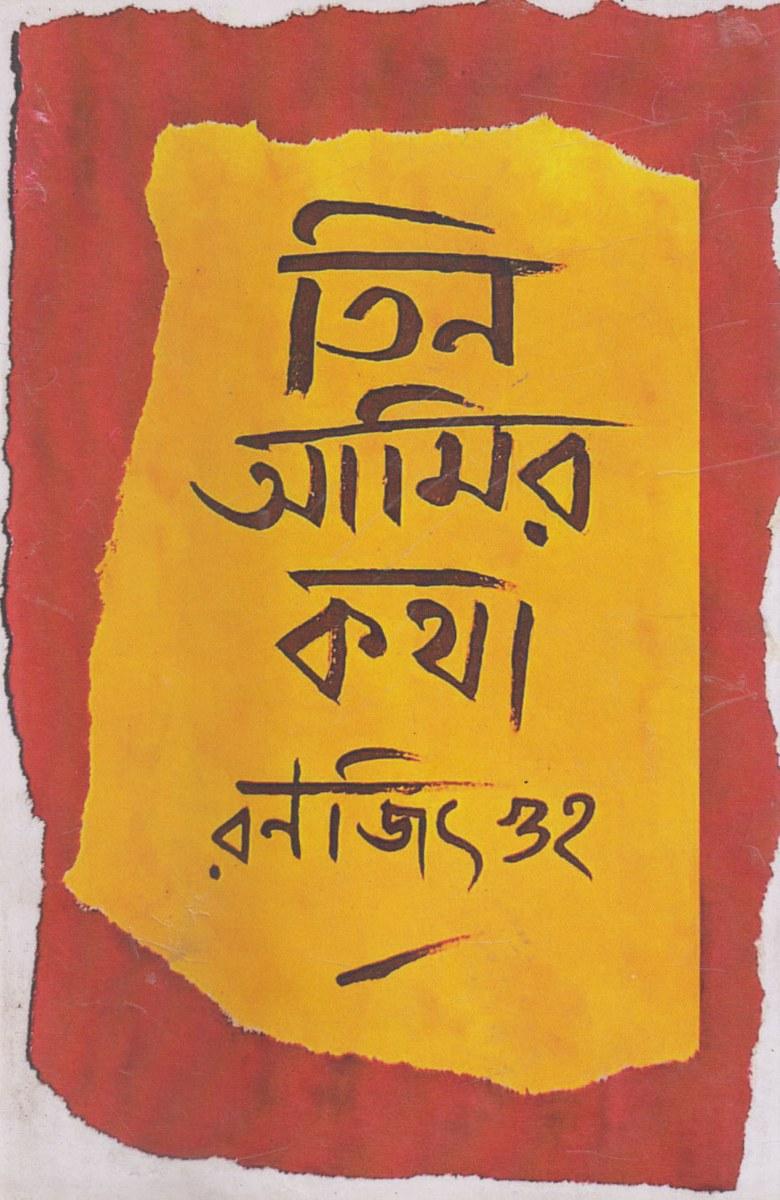 তিন
আমির
কথা
রণজিৎ গুহ